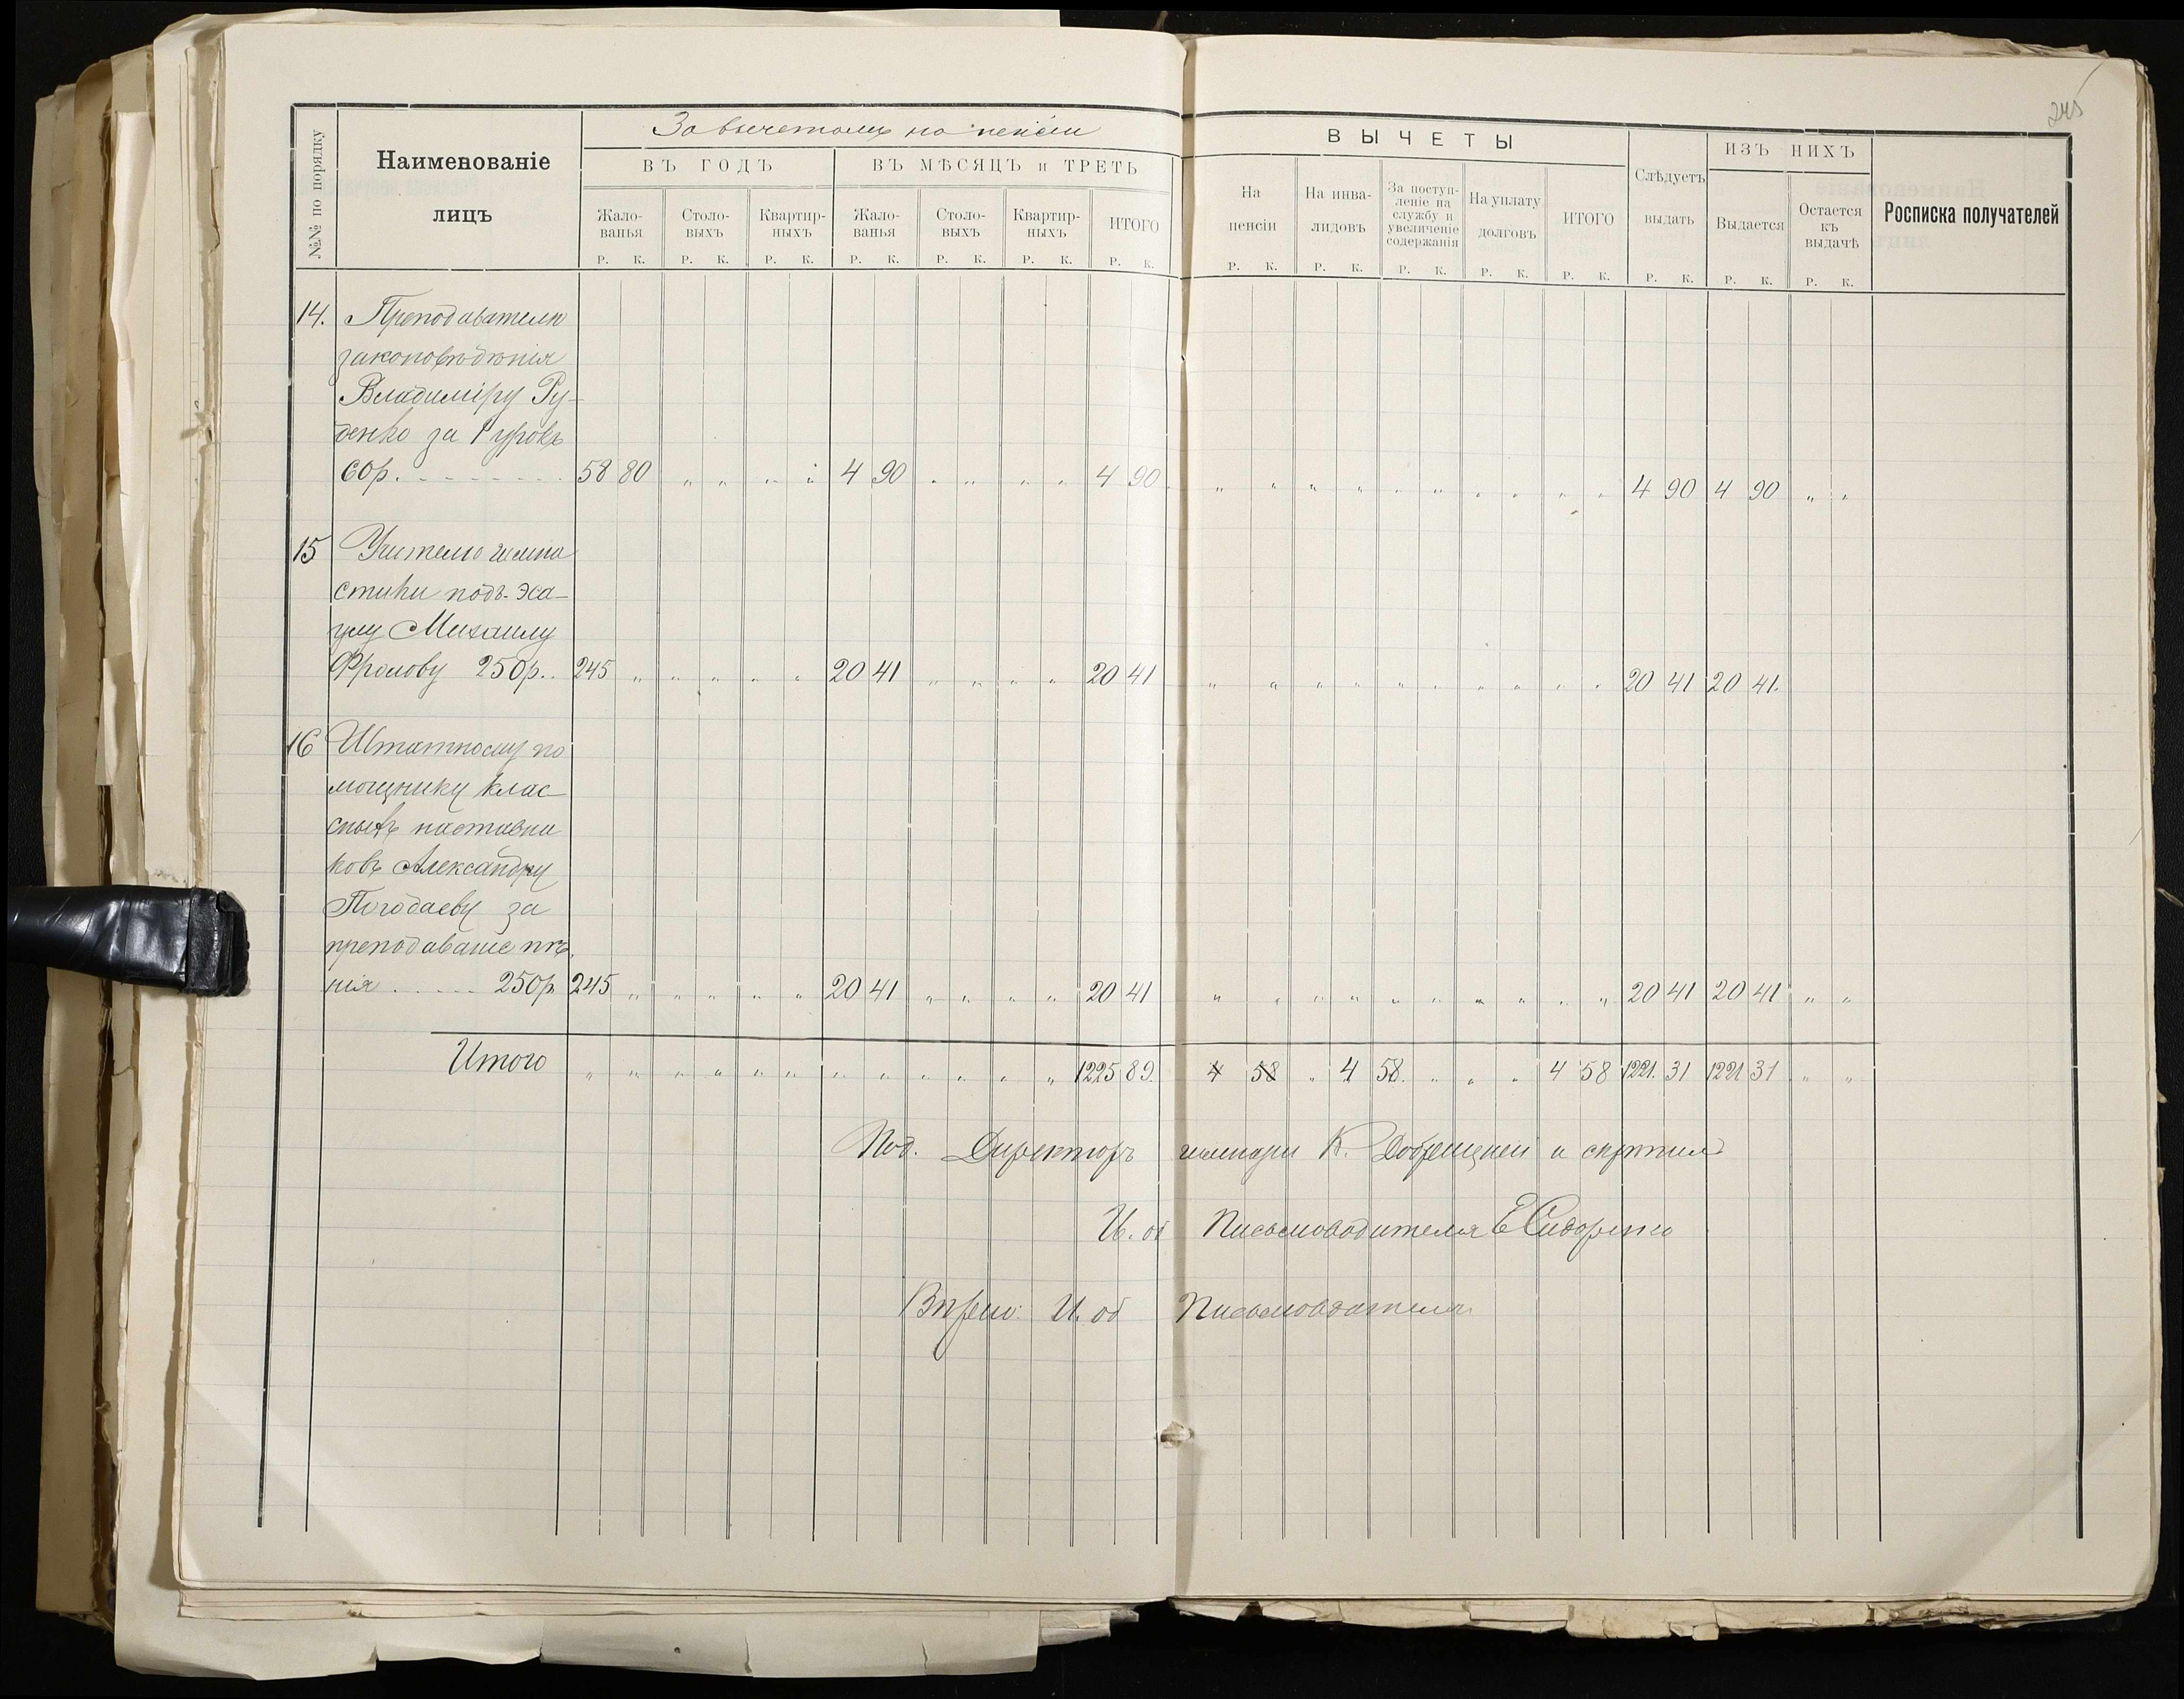 245
За вычетомъ на пенсіи
№№ по порядку
Наименованіе
лицъ
ВЪ ГОДЪ
ВЪ МѢСЯЦЪ и ТРЕТЬ
Жало-
ванья
Столо-
выхъ
Квартир-
ныхъ
Жало-
ванья
Столо-
выхъ
Квартир-
ныхъ
ИТОГО
Р. К. Р. К. Р. К. Р. К. Р. К. Р. К. Р. К.
ВЫЧЕТЫ
На
пенсіи
На инва-
лидовъ
За поступ-
леніе на
службу и
увеличеніе
содержанія
На уплату
долговъ
ИТОГО
Слѣдуетъ
выдать
ИЗЪ НИХЪ
Выдается
Остается
къ
выдачѣ
Росписка получателей
Р. К. Р. К. Р. К. Р. К. Р. К. Р. К. Р. К. Р. К.
14. Преподавателю
законовѣдѣнія
Владиміру Ру-
денко за 1 урокъ
60р. 58 80 " " " " 4 90 " " " " 4 90 " " " " " " " " " " 4 90 4 90 " "
15 Учителю гимна
стики подъ-эса-
улу Михаилу
Фролову 250р. 245 " " " " " 20 41 " " " " 20 41 " " " " " " " " " " 20 41 20 41.
16 Штатному по
мощнику клас-
сныхъ наставни
ковъ Александру
Погодаеву за
преподаваніе пѣ-
нія 250р 245 " " " " " 20 41 " " " " 20 41 " " " " " " " " " " 20 41 20 41 " "
Итого " " " " " " " " " " " " 1225 89. 4 58 " 4 58. " " " 4 58 1221. 31 1221 31 " "
Под. Директоръ гимназіи К. и скрѣпилъ
И. об Письмоводителя Е Сидоренко
Вѣрно: И. об Письмоводителя